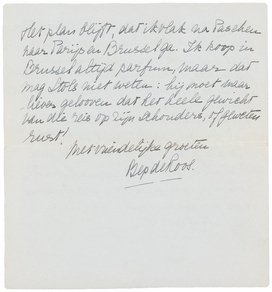 Het plan blijft, dat ik vlak na Paschen
naar Parijs en Brussel ga. Ik koop in
Brussel altijd parfum, maar dat
mag Stols niet weten: hij moet maar
liever gelooven dat het heele gewicht
van die reis op zijn schouders, of geweten
rust!
Met vriendelijke groeten
Bep de Roos.